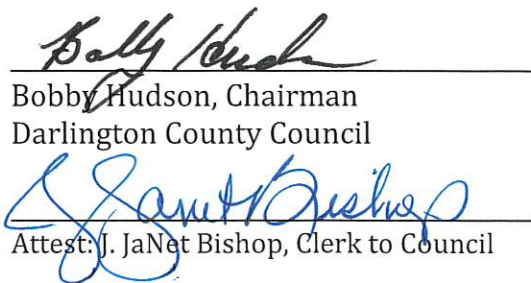 Bobby Hudson
Bobby Hudson, Chairman
Darlington County Council
J. JaNet Bishop
Attest: J. JaNet Bishop, Clerk to Council